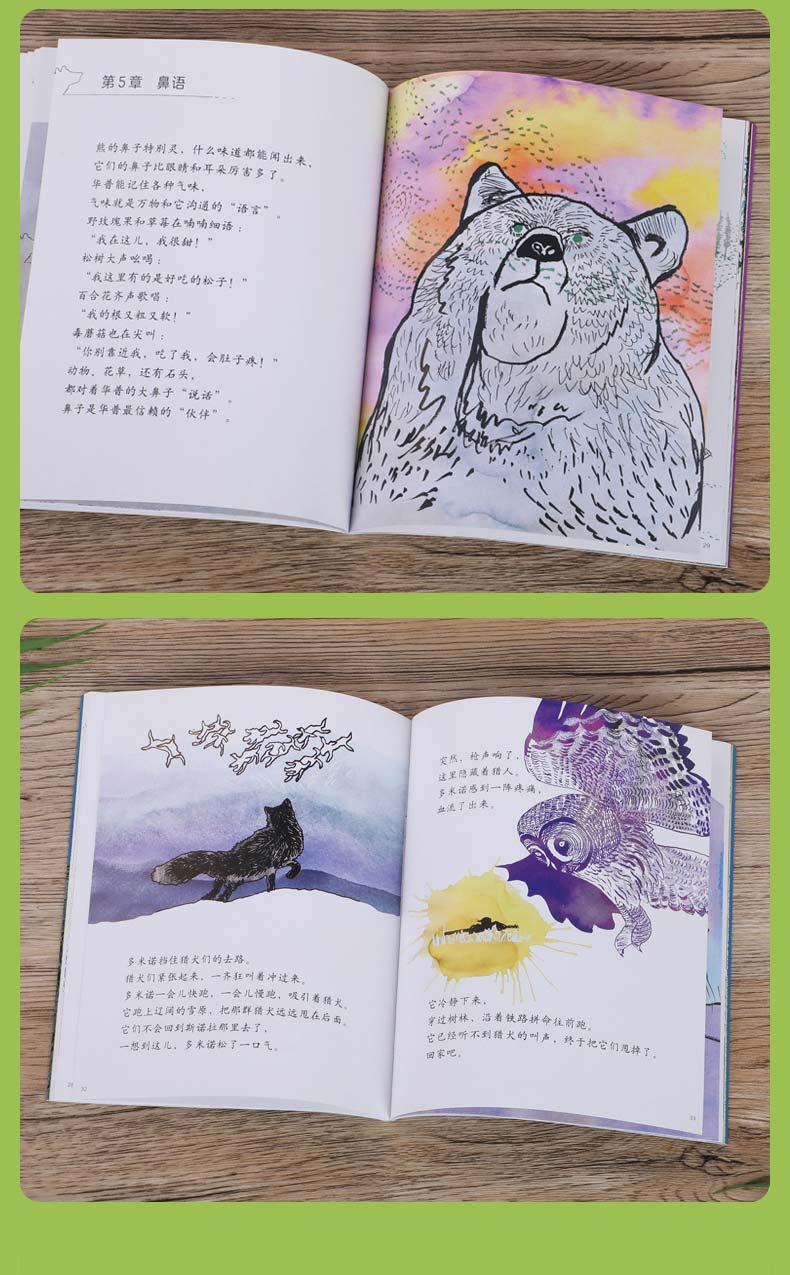 第5章 鼻语
熊的鼻子特别灵，什么味道都能闻出来，
它们的鼻子比眼睛和耳朵厉害多了。
华普能记住各种气味，
气味就是万物和它沟通的“语言”。
野玫瑰果和草莓在喃喃细语：
“我在这儿，我很甜！”
松树大声吆喝：
“我这里有的是好吃的松子！”
百合花齐声歌唱：
“我的根又粗又软！”
毒蘑菇也在尖叫：
“你别靠近我，吃了我，会肚子疼！”
动物、花草，还有石头，
都对着华普的大鼻子“说话”。
鼻子是华普最信赖的“伙伴”。
29
多米诺挡住猎犬们的去路。
猎犬们紧张起来，一齐狂叫着冲过来。
多米诺一会儿快跑，一会儿慢跑，吸引着猎犬。
它跑上辽阔的雪原，把那群猎犬远远甩在后面。
它们不会回到斯诺拉那里去了，
一想到这儿，多米诺松了一口气。
32
突然，枪声响了，
这里隐藏着猎人。
多米诺感到一阵疼痛，
血流了出来。
它冷静下来，
穿过树林、沿着铁路拼命往前跑。
它已经听不到猎犬的叫声，终于把它们甩掉了。
回家吧。
33